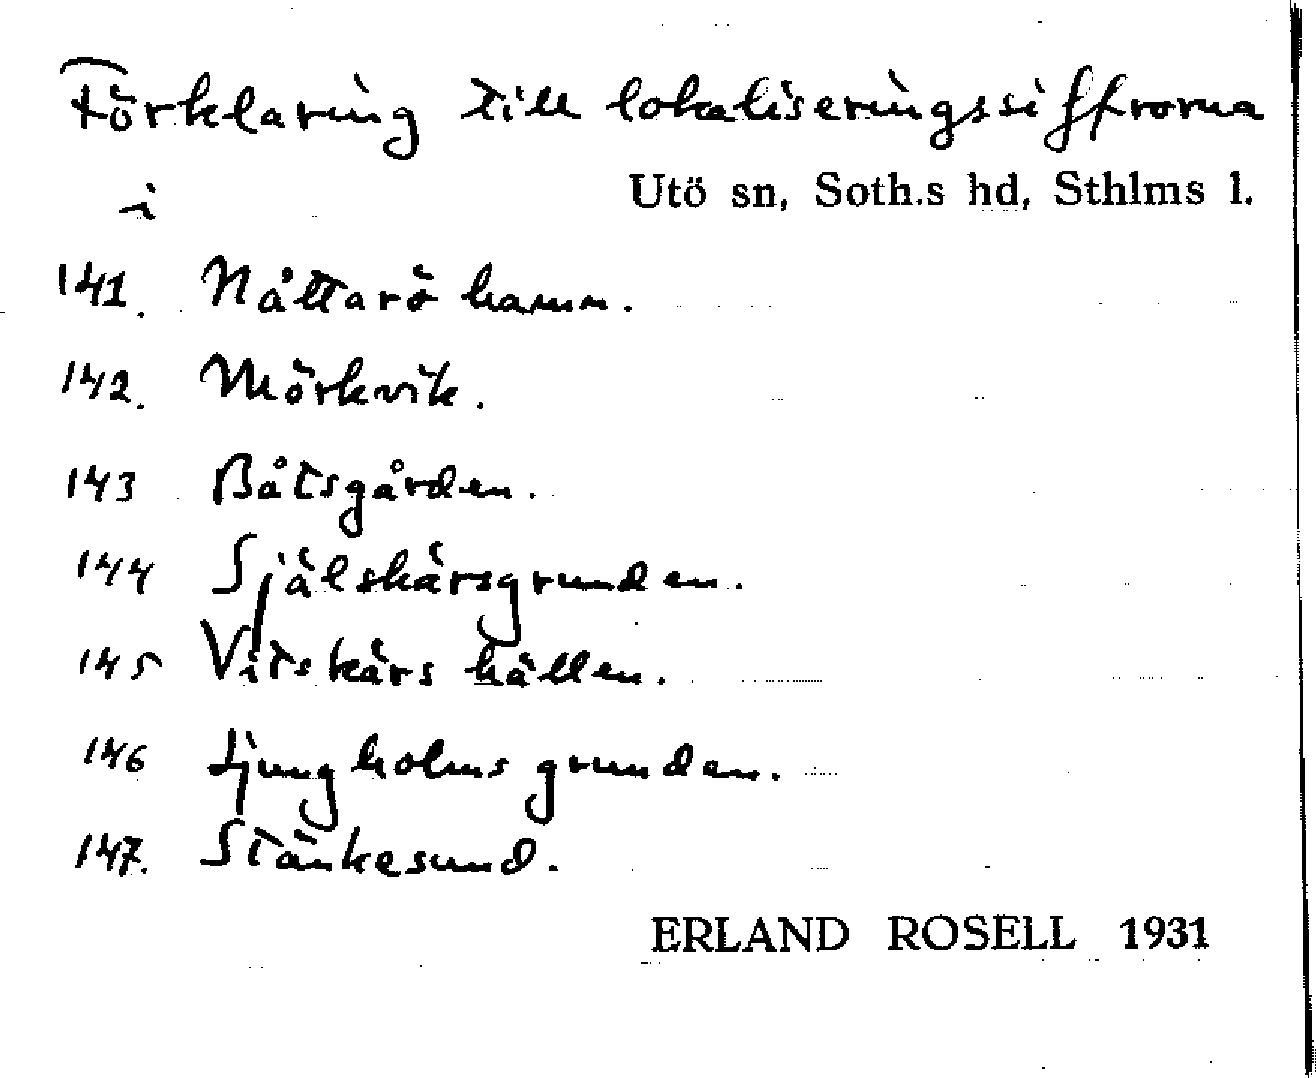 Förklaring till lokaliseringssiffrorna
i Utö sn, Soth.s hd, Sthlms l.
141. Nåttarö hamn.
142. Mörkvik.
143 Båtsgården.
144 Själskärsgrunden.
145 Vitskärs hällen.
146 Ljungholms grunden.
147. Stänkesund.
ERLAND ROSELL 1931